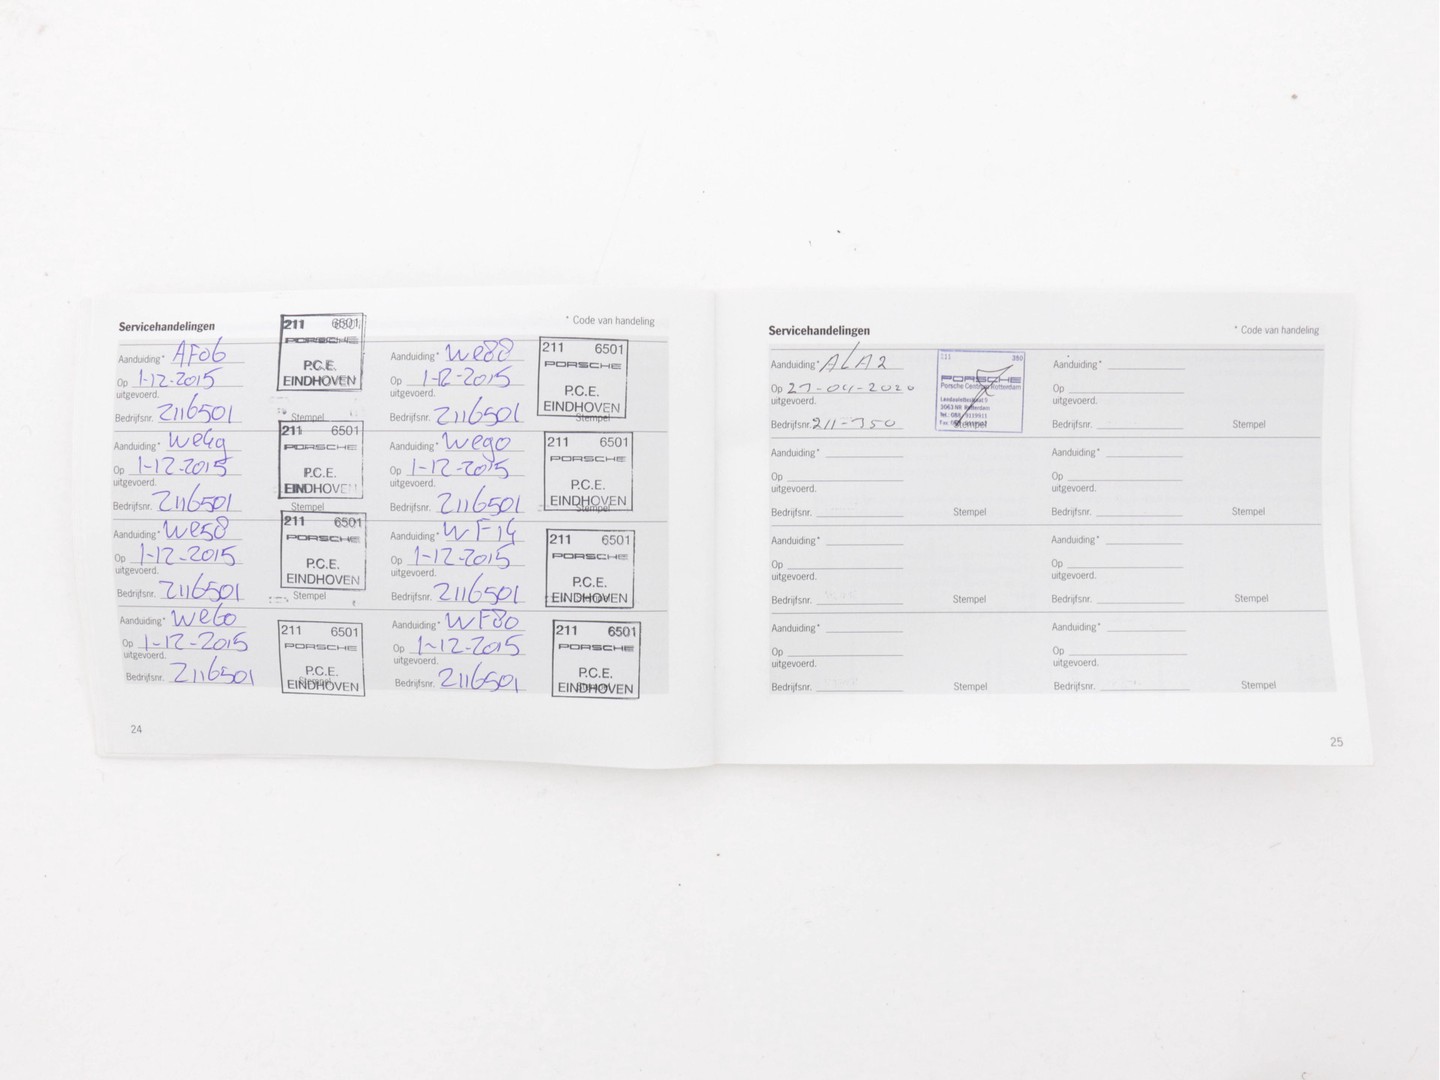 Servicehandelingen
* Code van handeling
Aanduiding* AF06
Op 1-12-2015
uitgevoerd.
Bedrijfsnr. 2116501
211 6501
PORSCHE
P.C.E.
EINDHOVEN
Stempel
Aanduiding* We88
Op 1-12-2015
uitgevoerd.
Bedrijfsnr. 2116501
211 6501
PORSCHE
P.C.E.
EINDHOVEN
Stempel
Aanduiding* We49
Op 1-12-2015
uitgevoerd.
Bedrijfsnr. 2116501
211 6501
PORSCHE
P.C.E.
EINDHOVEN
Stempel
Aanduiding* We90
Op 1-12-2015
uitgevoerd.
Bedrijfsnr. 2116501
211 6501
PORSCHE
P.C.E.
EINDHOVEN
Stempel
Aanduiding* We58
Op 1-12-2015
uitgevoerd.
Bedrijfsnr. 2116501
211 6501
PORSCHE
P.C.E.
EINDHOVEN
Stempel
Aanduiding* WF14
Op 1-12-2015
uitgevoerd.
Bedrijfsnr. 2116501
211 6501
PORSCHE
P.C.E.
EINDHOVEN
Aanduiding* We60
Op 1-12-2015
uitgevoerd.
Bedrijfsnr. 2116501
211 6501
PORSCHE
P.C.E.
EINDHOVEN
Stempel
Aanduiding* WF80
Op 1-12-2015
uitgevoerd.
Bedrijfsnr. 2116501
211 6501
PORSCHE
P.C.E.
EINDHOVEN
24
Servicehandelingen
* Code van handeling
Aanduiding* ALA2
Op 27-04-2020
uitgevoerd.
Bedrijfsnr. 211-350
211 350
PORSCHE
Porsche Centrum Rotterdam
3063 NR Rotterdam
Stempel
Aanduiding*
Op
uitgevoerd.
Bedrijfsnr. Stempel
Aanduiding*
Op
uitgevoerd.
Bedrijfsnr. Stempel
Aanduiding*
Op
uitgevoerd.
Bedrijfsnr. Stempel
Aanduiding*
Op
uitgevoerd.
Bedrijfsnr. Stempel
Aanduiding*
Op
uitgevoerd.
Bedrijfsnr. Stempel
Aanduiding*
Op
uitgevoerd.
Bedrijfsnr. Stempel
Aanduiding*
Op
uitgevoerd.
Bedrijfsnr. Stempel
25